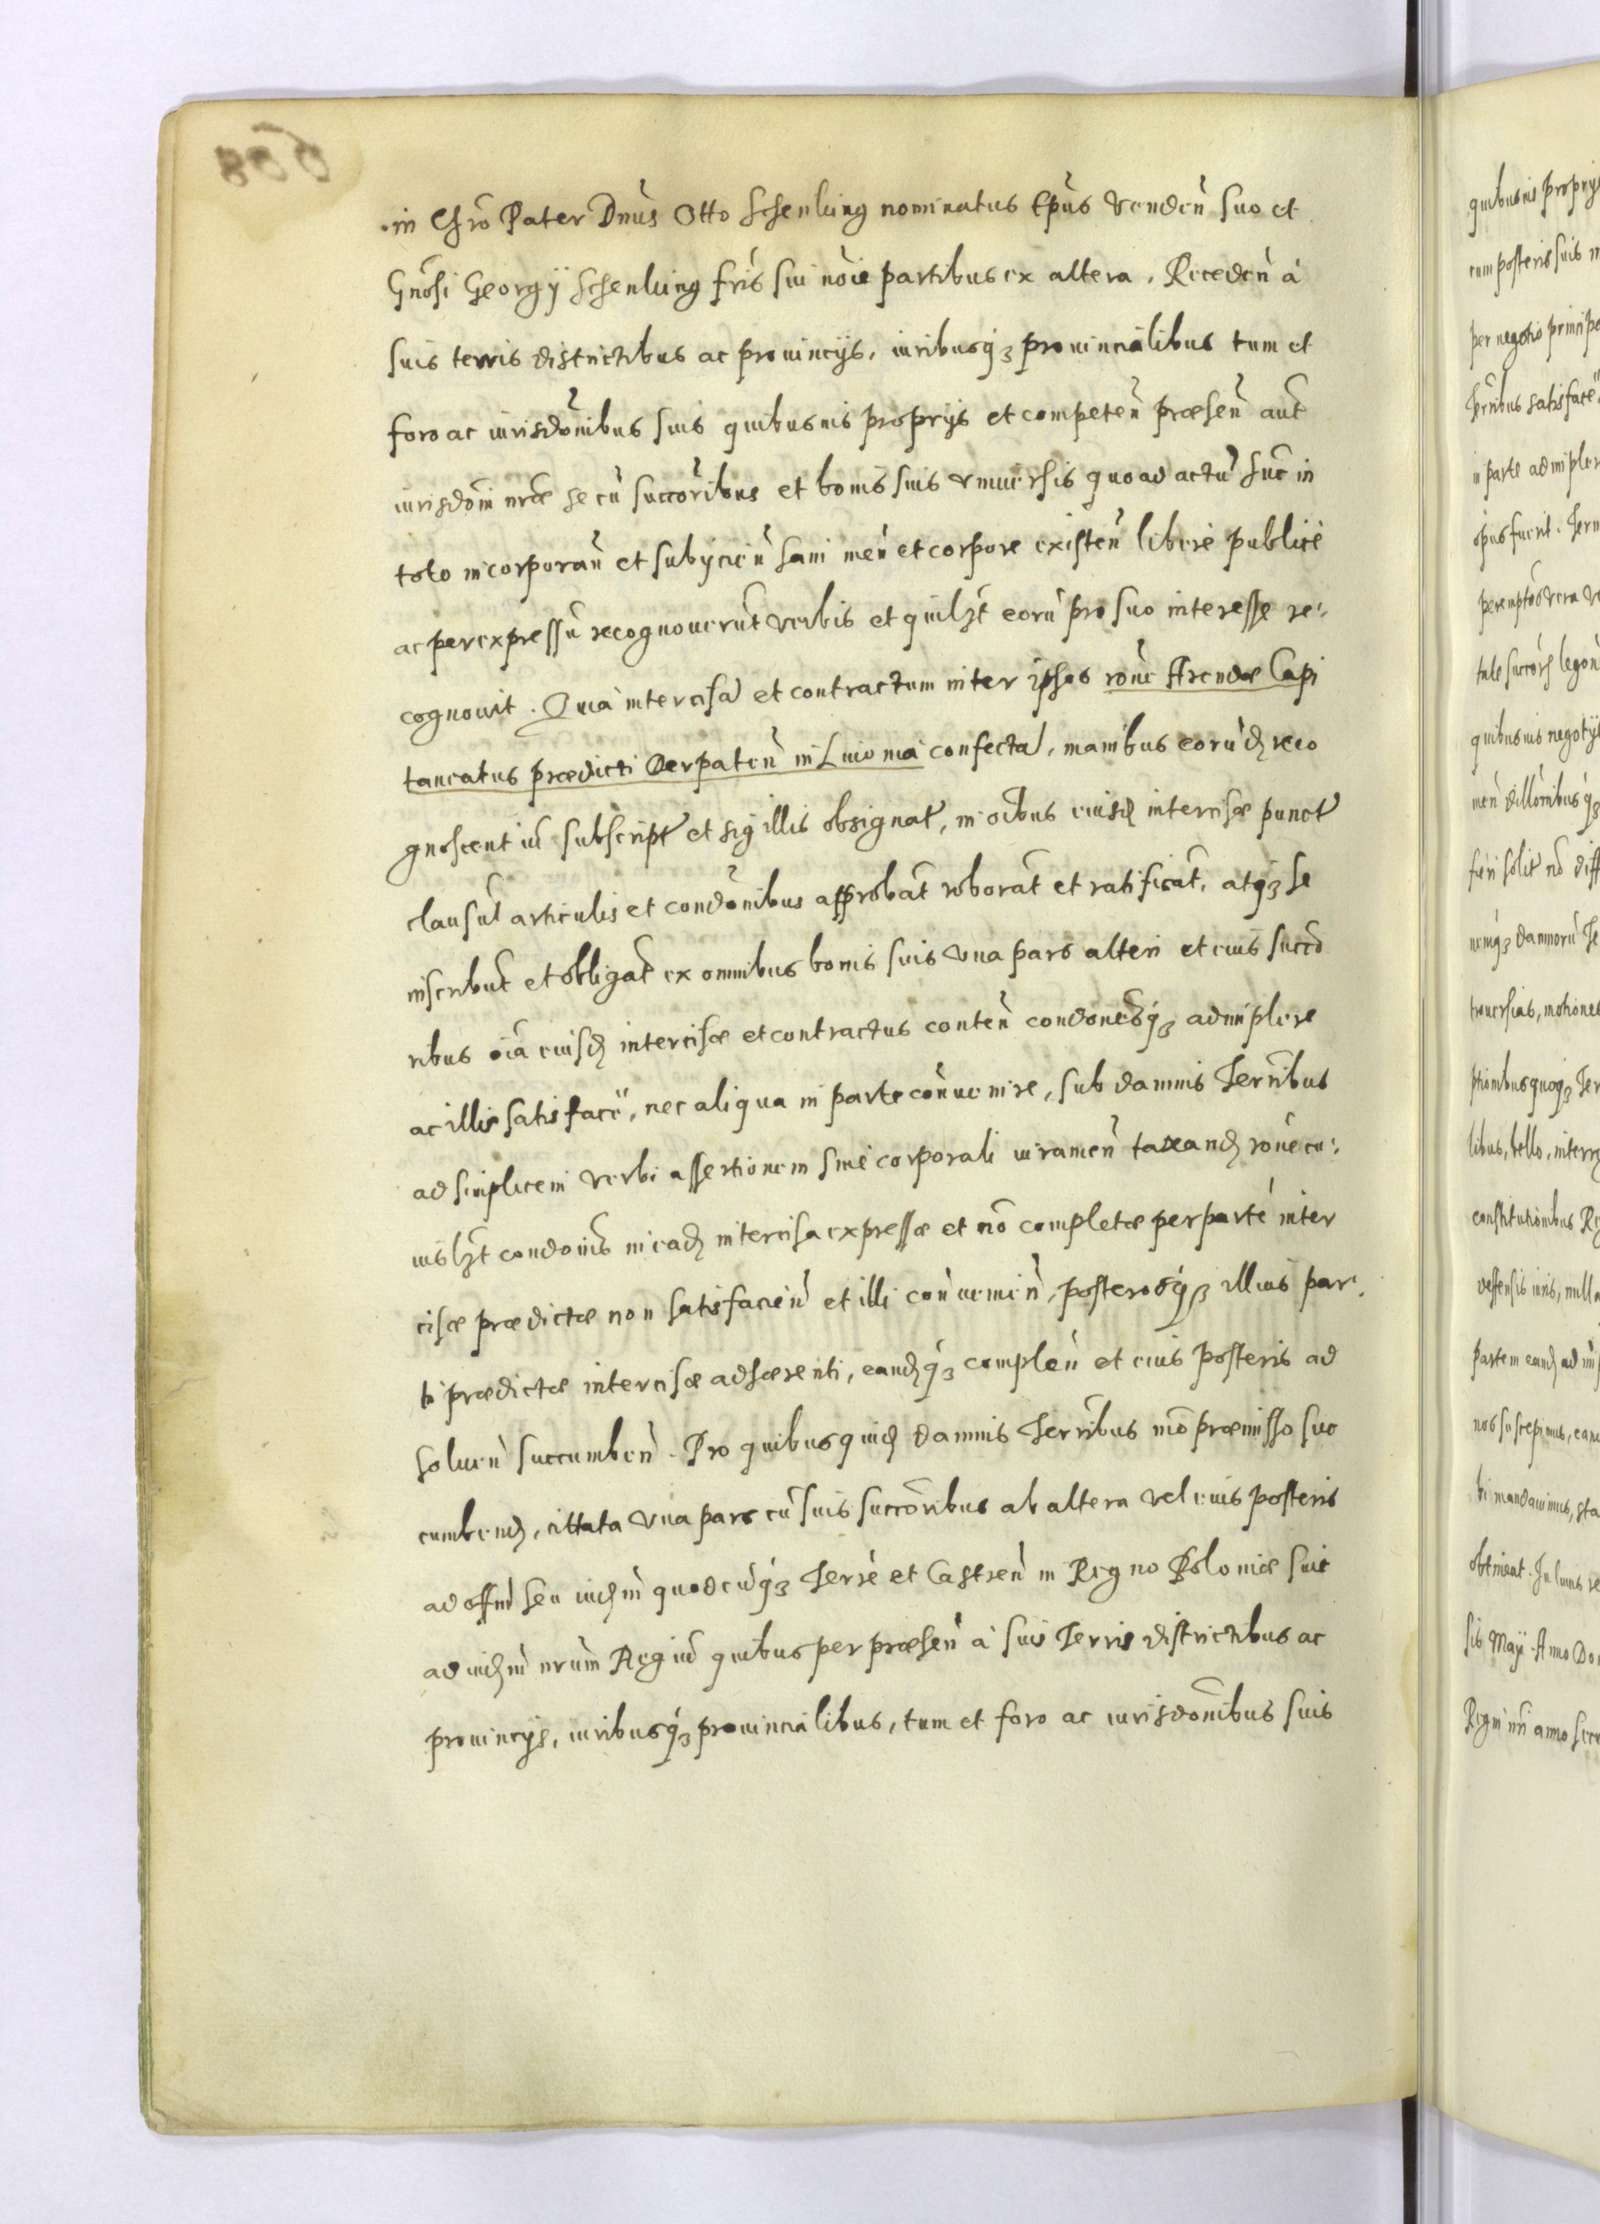 in Chrō Pater Dnūs Otto Schenking nominatus Epūs Venden̄ suo et
Gnōsi Georgij Schenking frīs sui nōie partibus ex altera. Receden̄ à
suis terris districtibus ac prouincijs, iuribusq3 prouincialibus tum et
foro ac iurisdōnibus suis quibusuis proprijs et competen̄ præsen̄ aūt
iurisdōni nrae se cū succōribus et bonis suis vniuersis quo ad actū hūc in
toto incorporan̄ et subijcien̄ sani men̄ et corpore existen̄ liberè publicè
ac per expressū recognouerūt verbis et quilz̄t eorū pro suo interesse re:
cognouit. Quià intercisā et contractum inter ipsos rōne Arendæ Capi
taneatus prædicti Derpaten̄ in Liuonia confectā, manibus eorūd reco
gnoscentiū subscript et sigillis obsignat, in oībus eiusd intercisæ punct
clausul articulis et condōnibus approbāt roborāt et ratificāt, atq3 se
inscribūt et obligāt ex omnibus bonis suis vna pars alteri et eius succō
ribus oīa eiusd intercisæ et contractus conten̄ condōnesq3 adimplere
ac illis satisfacē, nec aliqua in parte con̄uenire, sub damnis Terrībus
ad simplicem verbi assertionem sine corporali iuramen̄ taxand rōne cu:
iuslz̄t condōnis in eadē intercisa expressæ et nō completæ per partē inter
cisæ prædictæ non satisfacien̄ et illi con̄uenien̄, posterosq3 illius par
ti prædictæ intercisæ adhærenti, eandq3 complen̄ et eius posteris ad
soluen̄ succumben̄. Pro quibusquid damnis Terrībus mō præmisso suc
cumbend, cittata vna pars cū suis succōribus ab altera vel eius posteris
ad offm̄ seu iudm̄ quodcūq3 Terrē et Castren̄ in Regno Poloniæ siue
ad iudm̄ nrūm Regiū quibus per præsen̄ à suis Terris districtibus ac
prouincijs, iuribusq3 prouincialibus, tum et foro ac iurisdōnibus suis
quibusuis proprijs
cum posteris suis
per negotio
Terribus satisface
in parte adimpler
opus fuerit.
quibusuis negotijs
fieri solit nō diff
constitutionibus
partem eand
nos suscepimus,
bi mandauimus,
obtineat.
sis Maij Anno Do
Regni nri anno